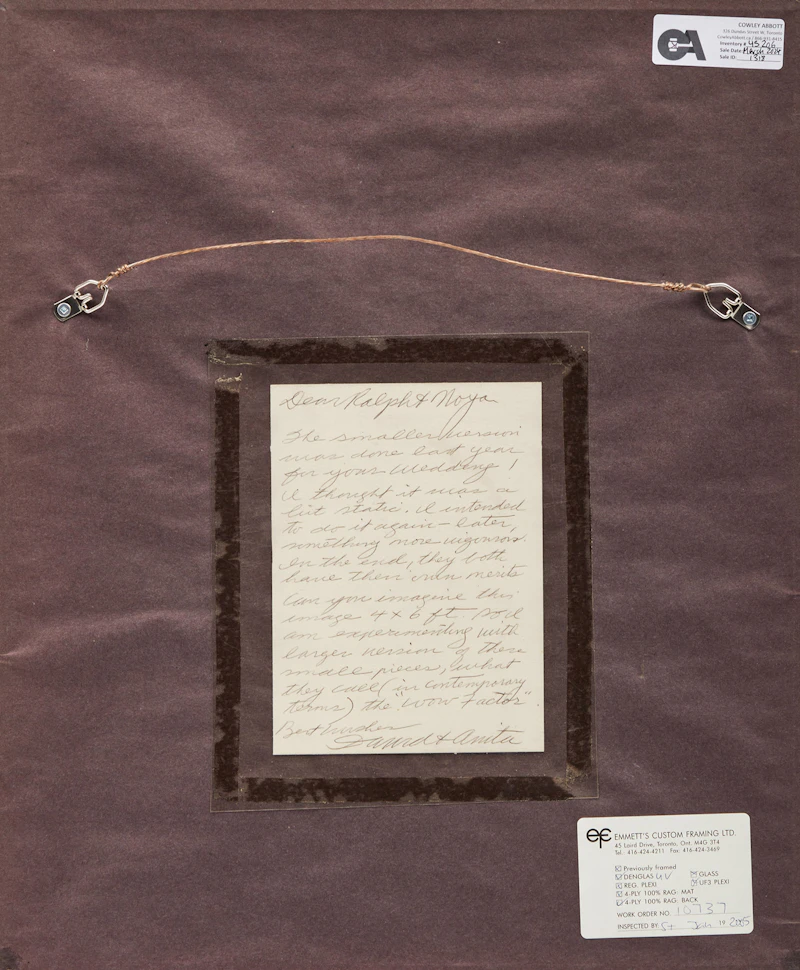 COWLEY ABBOTT
326 Dundas Street W, Toronto
Inventory # 45206
Sale Date March 2024
Sale ID 1313
Dear Ralph & Noya
The smaller version
was done last year
for your Wedding!
I thought it was a
bit static. I intended
to do it again – later,
something more vigorous.
In the end, they both
have their own merits
Can you imagine this
image 4 x 6 ft. So I
am experimenting with
larger version of these
small pieces, what
they call (in contemporary
terms) the "WOW Factor".
Best wishes
David & Anita
ecf EMMETT'S CUSTOM FRAMING LTD.
45 Laird Drive, Toronto, Ont. M4G 3T4
Tel. 416-424-4211 Fax: 416-424-3469
Previously framed
DENGLAS UV GLASS
REG. PLEXI UF3 PLEXI
4-PLY 100% RAG- MAT
4-PLY 100% RAG- BACK
WORK ORDER NO. 10737
INSPECTED BY Jan 19 2005